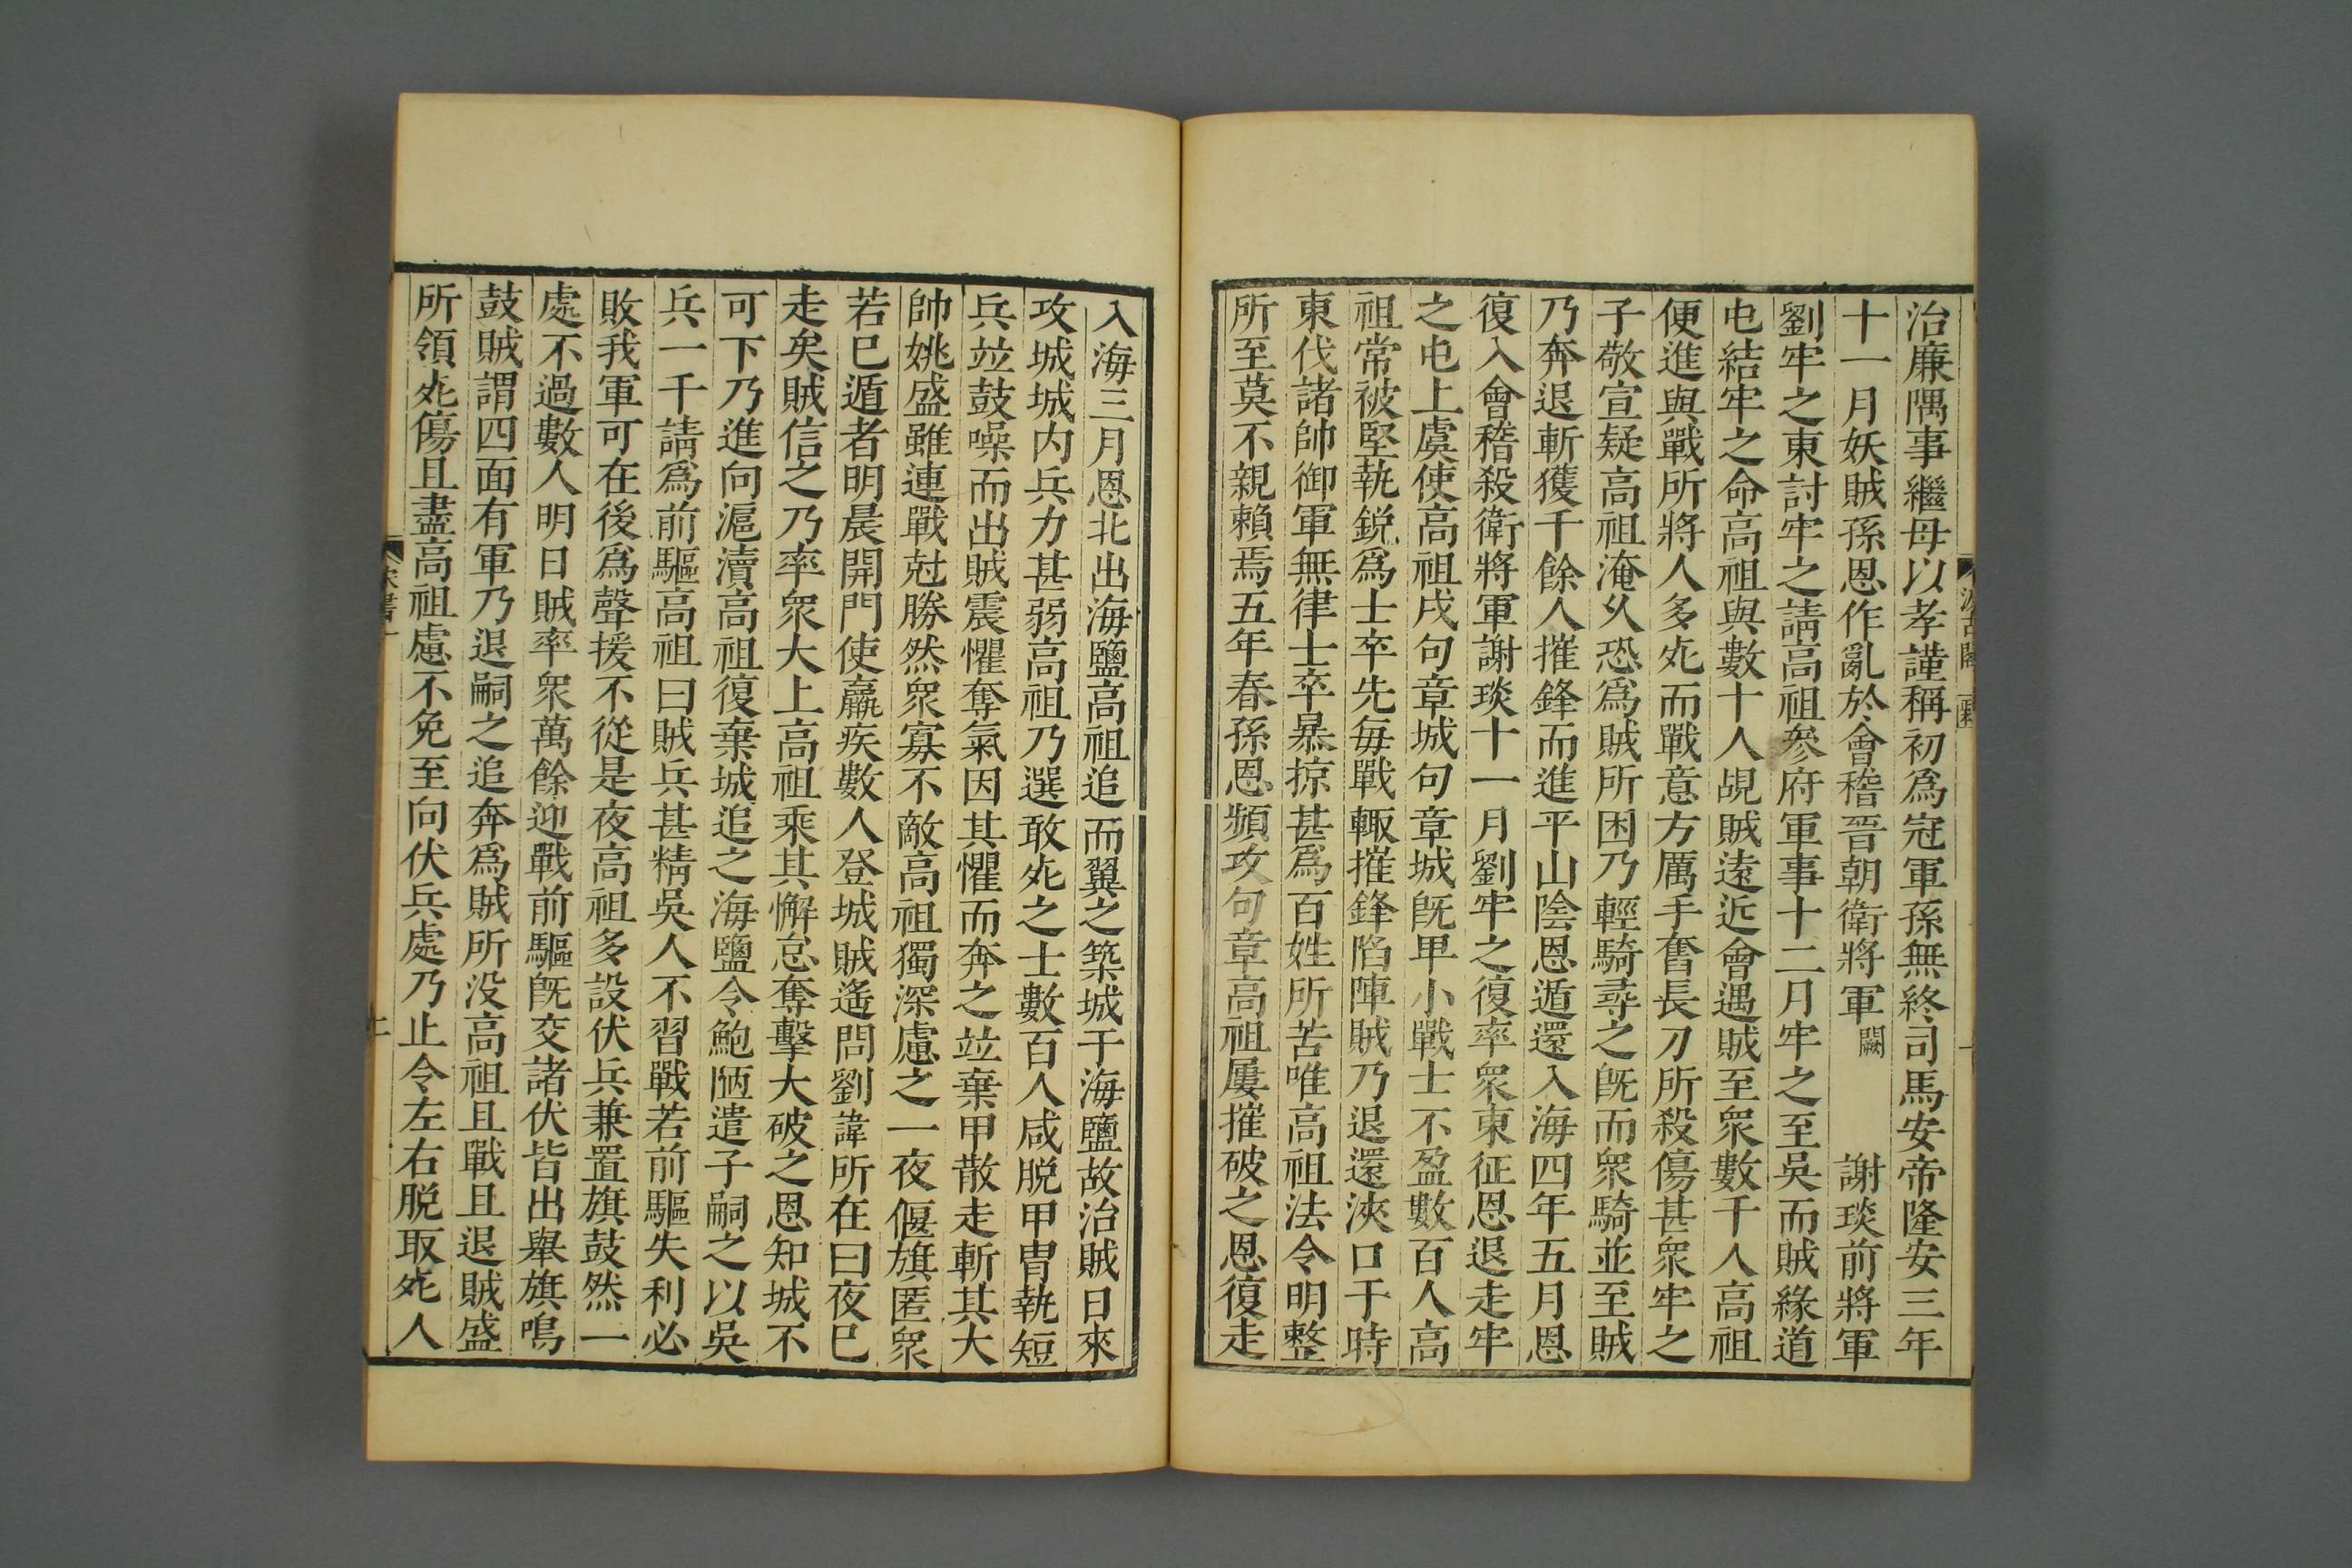 治廉隅事繼母以孝謹稱初爲冠軍孫無終司馬安帝隆安三年
十一月妖賊孫恩作亂於會稽晉朝衛將軍闕謝琰前將軍
劉牢之東討牢之請高祖參府軍事十二月牢之至吳而賊緣道
屯結牢之命高祖與數十人覘賊遠近會遇賊至衆數千人高祖
便進與戰所將人多死而戰意方厲手奮長刀所殺傷甚衆牢之
子敬宣疑高祖淹久恐爲賊所困乃輕騎尋之旣而衆騎並至賊
乃奔退斬獲千餘人摧鋒而進平山陰恩遁還入海四年五月恩
復入會稽殺衛將軍謝琰十一月劉牢之復率衆東征恩退走牢
之屯上虞使高祖戍句章城句章城旣𤰞小戰士不盈數百人高
祖常被堅執銳爲士卒先每戰輒摧鋒陷陣賊乃退還浹口于時
東伐諸帥御軍無律士卒暴掠甚爲百姓所苦唯高祖法令明整
所至莫不親賴焉五年春孫恩頻攻句章高祖屢摧破之恩復走
入海三月恩北出海鹽高祖追而翼之築城于海鹽故治賊日來
攻城城内兵力甚弱高祖乃選敢死之士數百人咸脫甲胄執短
兵竝鼓噪而出賊震懼奪氣因其懼而奔之竝棄甲散走斬其大
帥姚盛雖連戰尅勝然衆寡不敵高祖獨深慮之一夜偃旗匿衆
若巳遁者明晨開門使羸疾數人登城賊遙問劉諱所在曰夜巳
走矣賊信之乃率衆大上高祖乘其懈怠奮擊大破之恩知城不
可下乃進向滬瀆高祖復棄城追之海鹽令鮑陋遣子嗣之以吳
兵一千請爲前驅高祖曰賊兵甚精吳人不習戰若前驅失利必
敗我軍可在後爲聲援不從是夜高祖多設伏兵兼置旗鼓然一
處不過數人明日賊率衆萬餘迎戰前驅旣交諸伏皆出舉旗鳴
鼓賊謂四面有軍乃退嗣之追奔爲賊所沒高祖且戰且退賊盛
所領死傷且盡高祖慮不免至向伏兵處乃止令左右脫取死人